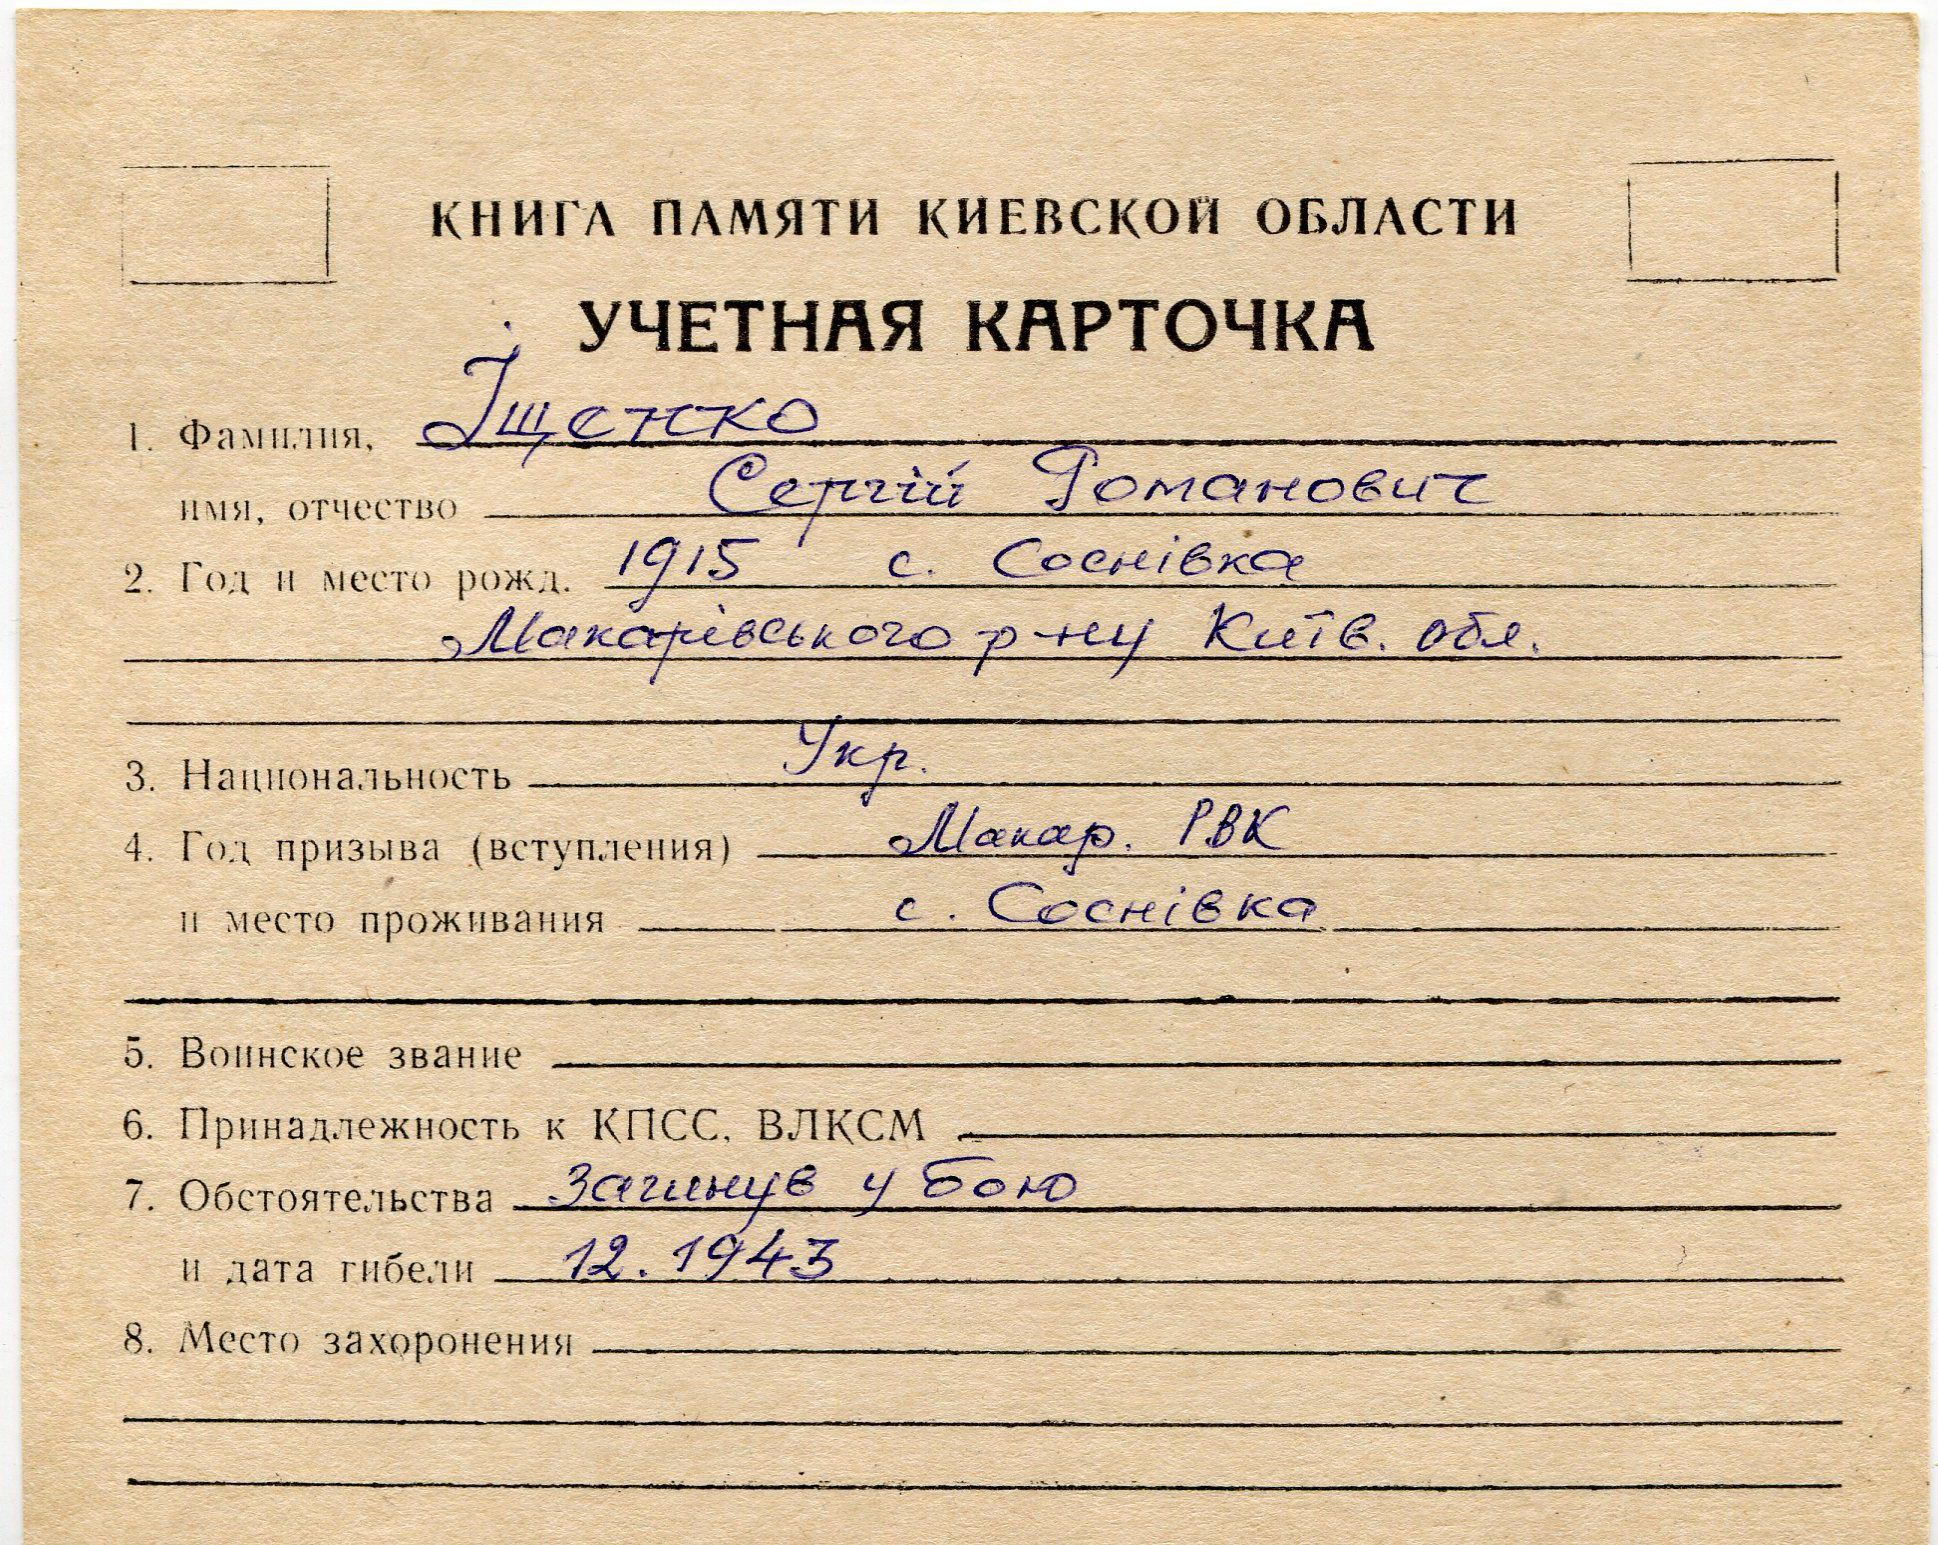 КНИГА ПАМЯТИ КИЕВСКОЙ ОБЛАСТИ
УЧЕТНАЯ КАРТОЧКА
1. Фамилия, Іщенко
имя, отчество Сергій Романович
2. Год и место рожд. 1915 с. Соснівка
Макарівського р-ну Київ. обл.
3. Национальность Укр.
4. Год призыва (вступления) Макар. РВК
и место проживания с. Соснівка
5. Воинское звание
6. Принадлежность к КПСС, ВЛКСМ
7. Обстоятельства Загинув у бою
и дата гибели 12.1943
8. Место захоронения